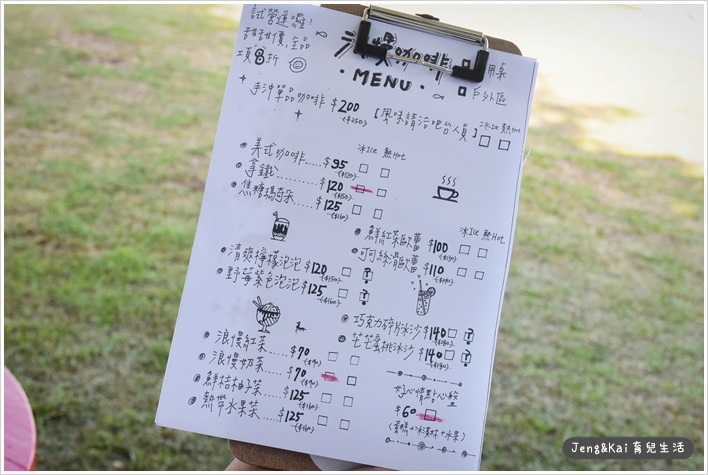 試營運喔!
甜甜價,全品
項8折
咖啡
MENU
用桌
戶外區
手沖單品咖啡 $200
($250)
[風味請洽吧台人員]
冰Ice 熱Hot
冰Ice 熱Hot
美式咖啡......$95
($120)
拿鐵......$120
($150)
焦糖瑪奇朵 $125
($160)
冰Ice 熱Hot
鮮紅茶歐蕾 $100
($130)
可可絲滑歐蕾 $110
($140)
清爽檸檬泡泡 $120
($150)
野莓紫色泡泡 $125
($160)
巧克力碎片冰沙 $140
($180)
芒芒蜜桃冰沙 $140
($180)
浪慢紅茶 $70
($90)
浪慢奶茶 $70
($90)
鮮桔柚子茶 $125
($160)
熱帶水果茶 $125
($160)
好心情點心敷
$60
+冰淇淋+水果)
Jeng&Kai 育兒生活